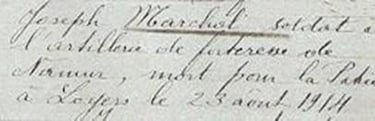 Joseph Marchal soldat
l'artillerie de forteresse de
Namur, mort pour la Patrie
à Loyers le 23 aout 1914